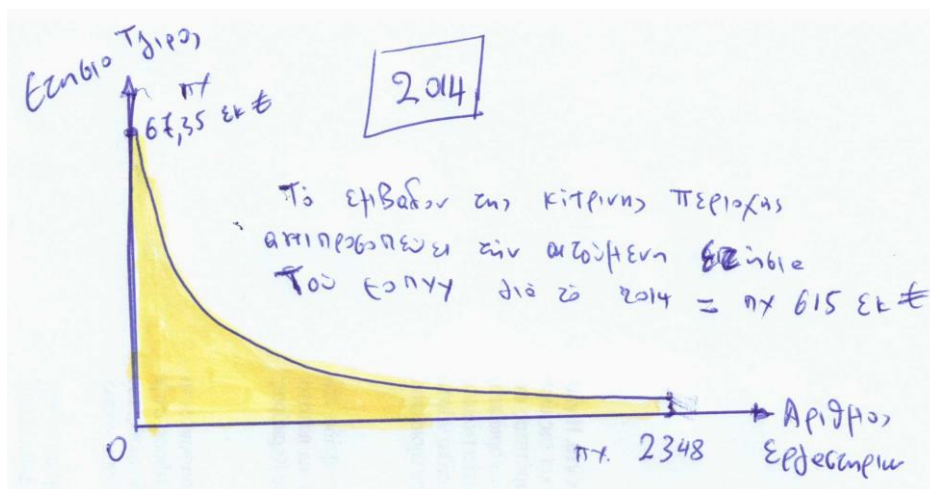 Ετησιο Τζιρος
πχ
67,35 εκ €
2014
Το εμβαδον της κίτρινης περιοχης
αντιπροσοπεύει την αιτούμενη ετήσια
Του εοπυυ για το 2014 = πχ 615 εκ €
0
πχ. 2348
Αριθμος
Εργαστηριων